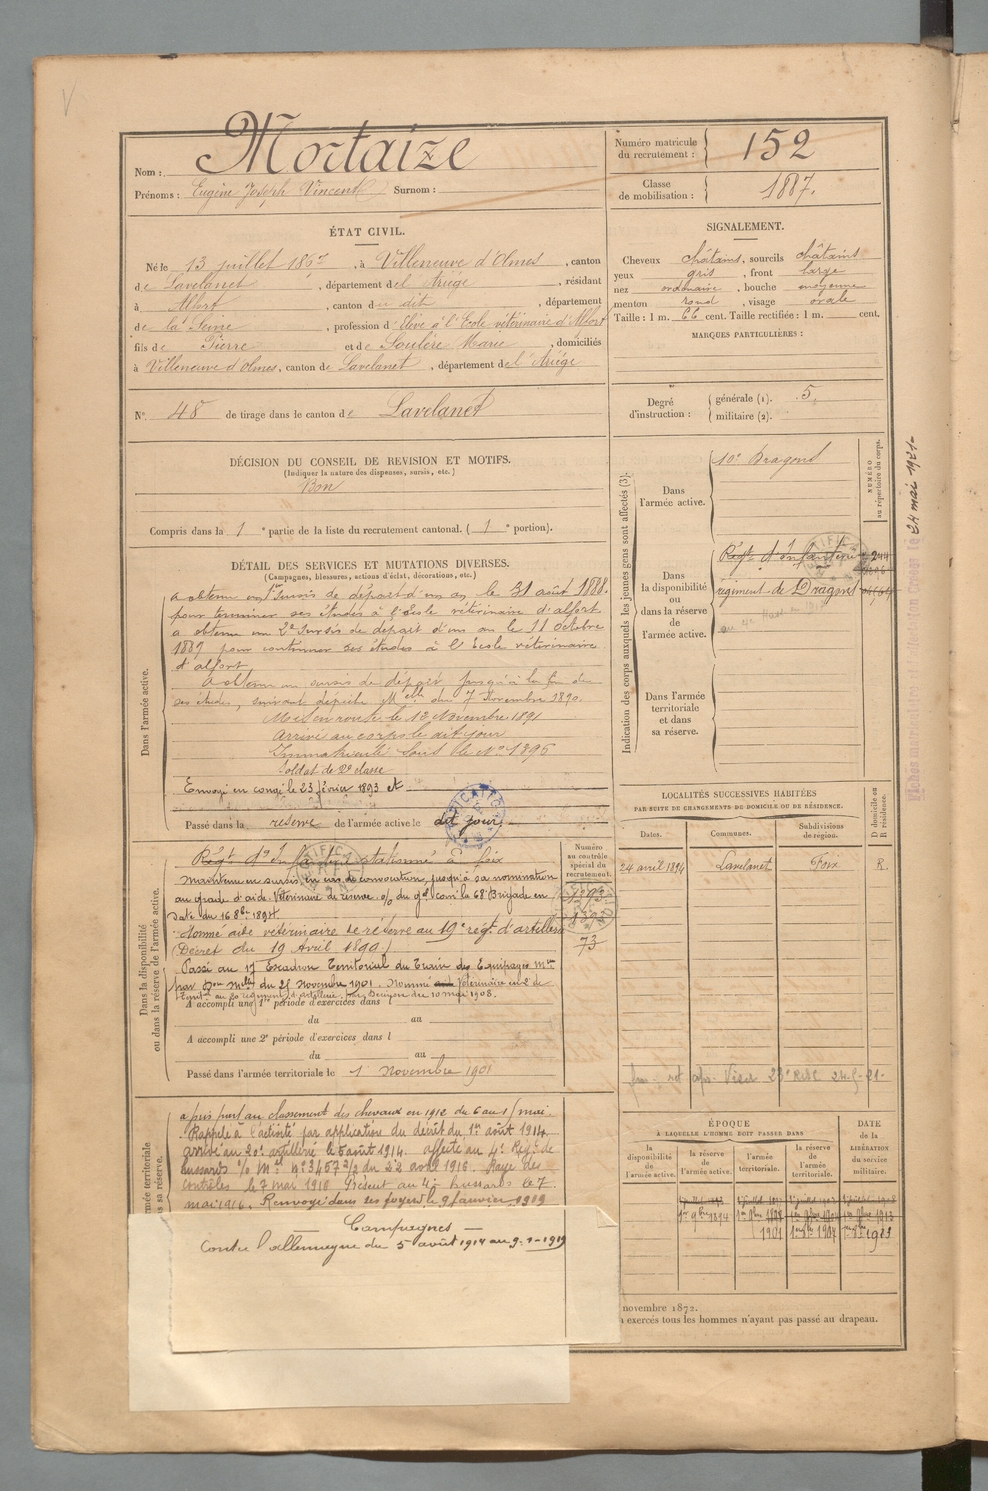 Mortaize
Nom :
Prénoms : Eugène Joseph Vincent Surnom :
Numéro matricule du recrutement : 152
Classe de mobilisation : 1887.
ÉTAT CIVIL.
Né le 13 juillet 1867, à Villeneuve d'Olmes, canton
de Lavelanet, département de l'Ariège, résidant
à Alfort, canton du dit, département
de la Seine, profession d'Elève à l'Ecole vétérinaire d'Alfort
fils de Pierre et de Soulère Marie, domiciliés
à Villeneuve d'Olmes, canton de Lavelanet, département de l'Ariège
N° 48 de tirage dans le canton de Lavelanet
SIGNALEMENT.
Cheveux châtains, sourcils châtains
yeux gris, front large
nez ordinaire, bouche moyenne
menton rond, visage ovale
Taille : 1 m. 66 cent. Taille rectifiée : 1 m. cent.
MARQUES PARTICULIÈRES :
Degré d'instruction : générale (1). 5.
militaire (2).
DÉCISION DU CONSEIL DE REVISION ET MOTIFS.
(Indiquer la nature des dispenses, sursis, etc.)
Bon
Compris dans la 1e partie de la liste du recrutement cantonal. (1e portion).
DÉTAIL DES SERVICES ET MUTATIONS DIVERSES.
(Campagnes, blessures, actions d'éclat, décorations, etc.)
Dans l'armée active.
a obtenu un 1er sursis de départ d'un an le 31 août 1888.
pour terminer ses études à l'école vétérinaire d'alfort
a obtenu un 2e sursis de départ d'un an le 11 octobre
1889 pour continuer ses études à l'Ecole vétérinaire
d'alfort,
A obtenu un sursis de départ jusqu'à la fin de
ses études, suivant dépêche Melle du 7 Novembre 1890.
Mis en route le 12 Novembre 1891
Arrivé au corps le dit jour
Immatriculé sous le No 1396
Soldat de 2e classe
Envoyé en congé le 23 février 1893 et
Passé dans la réserve de l'armée active le dit jour
Indication des corps auxquels les jeunes gens sont affectés (3).
Dans l'armée active.
10e Dragons
NUMÉRO au répertoire du corps.
Dans la disponibilité ou dans la réserve de l'armée active.
Régt d'Infanterie
régiment de Dragons
Dans l'armée territoriale et dans sa réserve.
24 mai 1921-
Dans la disponibilité ou dans la réserve de l'armée active.
Numéro au contrôle spécial du recrutement.
Régt d'Infanterie stationné à Foix
Maintenu en sursis en cas de convocation jusqu'à sa nomination
au grade d'aide Vétérinaire de réserve o/ du gal comt la 68e Brigade en
date du 16 8bre 1894
Nommé aide vétérinaire de réserve au 19e régt d'artillerie
(Décret du 19 Avril 1899.)
73
Passé au 17 Escadron Territorial du Train des Equipages Mres
par Don Melle du 25 Novembre 1901. Nommé Vétérinaire en 2 de
A accompli une 1re période d'exercices dans
du au
A accompli une 2e période d'exercices dans l
du au
Passé dans l'armée territoriale le 1 Novembre 1901
LOCALITÉS SUCCESSIVES HABITÉES
PAR SUITE DE CHANGEMENTS DE DOMICILE OU DE RÉSIDENCE.
Dates. Communes. Subdivisions de région. D domicile ou R résidence.
24 avril 1894 Lavelanet Foix R.
a pris part au classement des chevaux en 1912 du 6 au 1/ mai.
Rappelé à l'activité par application du décret du 1er août 1914
arrivé au 20e artillerie le 5 août 1914. affecté au 4e Régt de
hussards o/o Mel no 3457 2/2 du 22 avril 1916. Rayé des
contrôles le 7 mai 1916 Présent au 4e hussards le 7
mai 1916. Renvoyé dans ses foyers le 9 Janvier 1919
Campagnes —
Contre l'allemagne du 5 août 1914 au 9-1-1919
ÉPOQUE
À LAQUELLE L'HOMME DOIT PASSER DANS
la disponibilité de l'armée active.
la réserve de l'armée active.
l'armée territoriale.
la réserve de l'armée territoriale.
DATE de la LIBÉRATION du service militaire.
novembre 1872.
exercés tous les hommes n'ayant pas passé au drapeau.